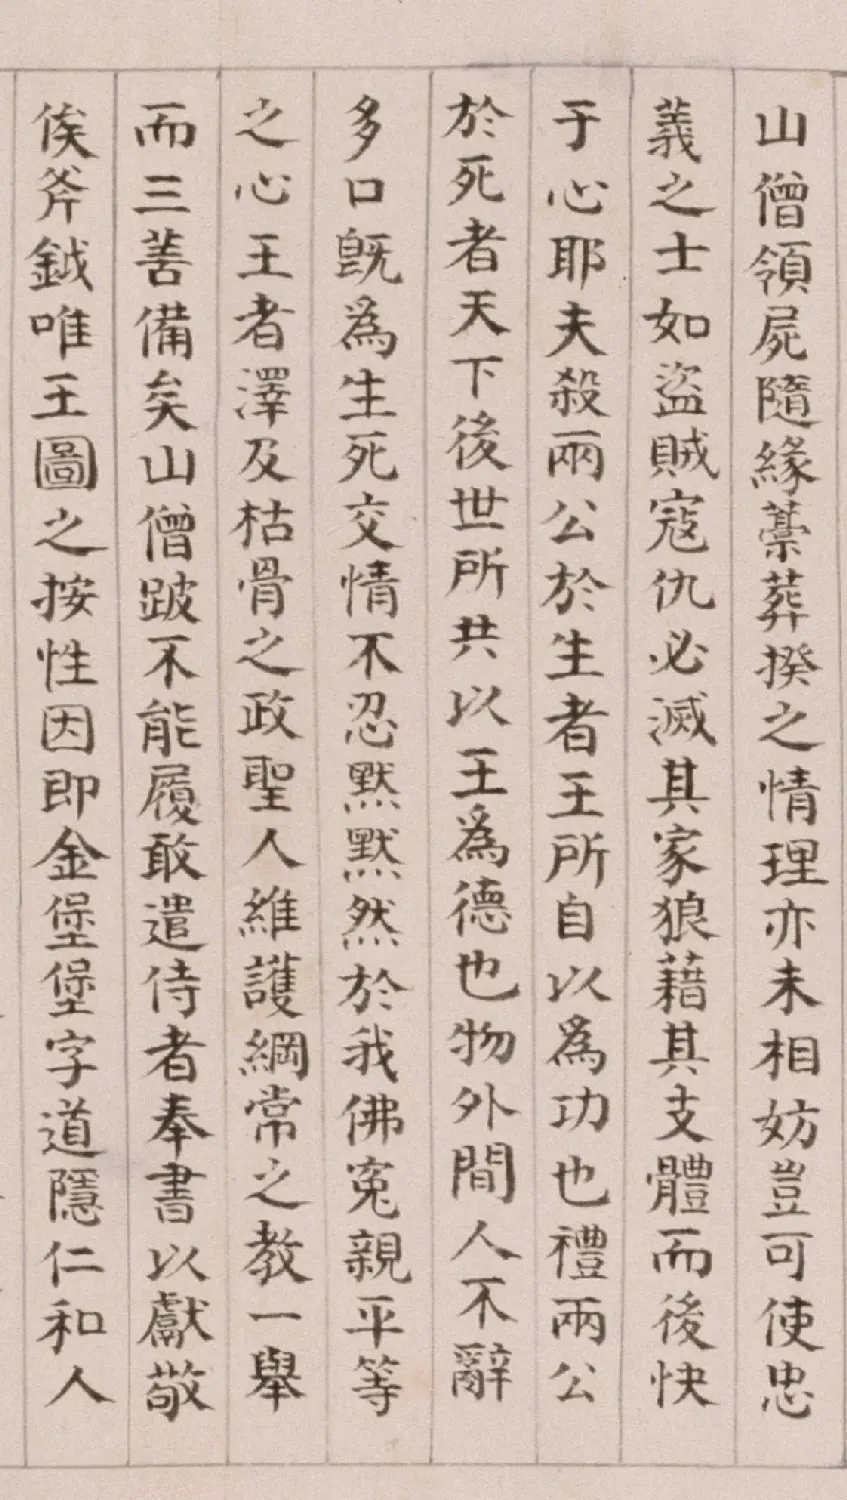 山僧領屍隨緣藁葬揆之情理亦未相妨豈可使忠
義之士如盜賊寇仇必滅其家狼藉其支體而後快
于心耶夫殺兩公於生者王所自以為功也禮兩公
於死者天下後世所共以王為德也物外間人不辭
多口旣為生死交情不忍默默然於我佛寃親平等
之心王者澤及枯骨之政聖人維護綱常之教一舉
而三善備矣山僧跛不能履敢遣侍者奉書以獻敬
俟斧鉞唯王圖之按性因即金堡堡字道隱仁和人